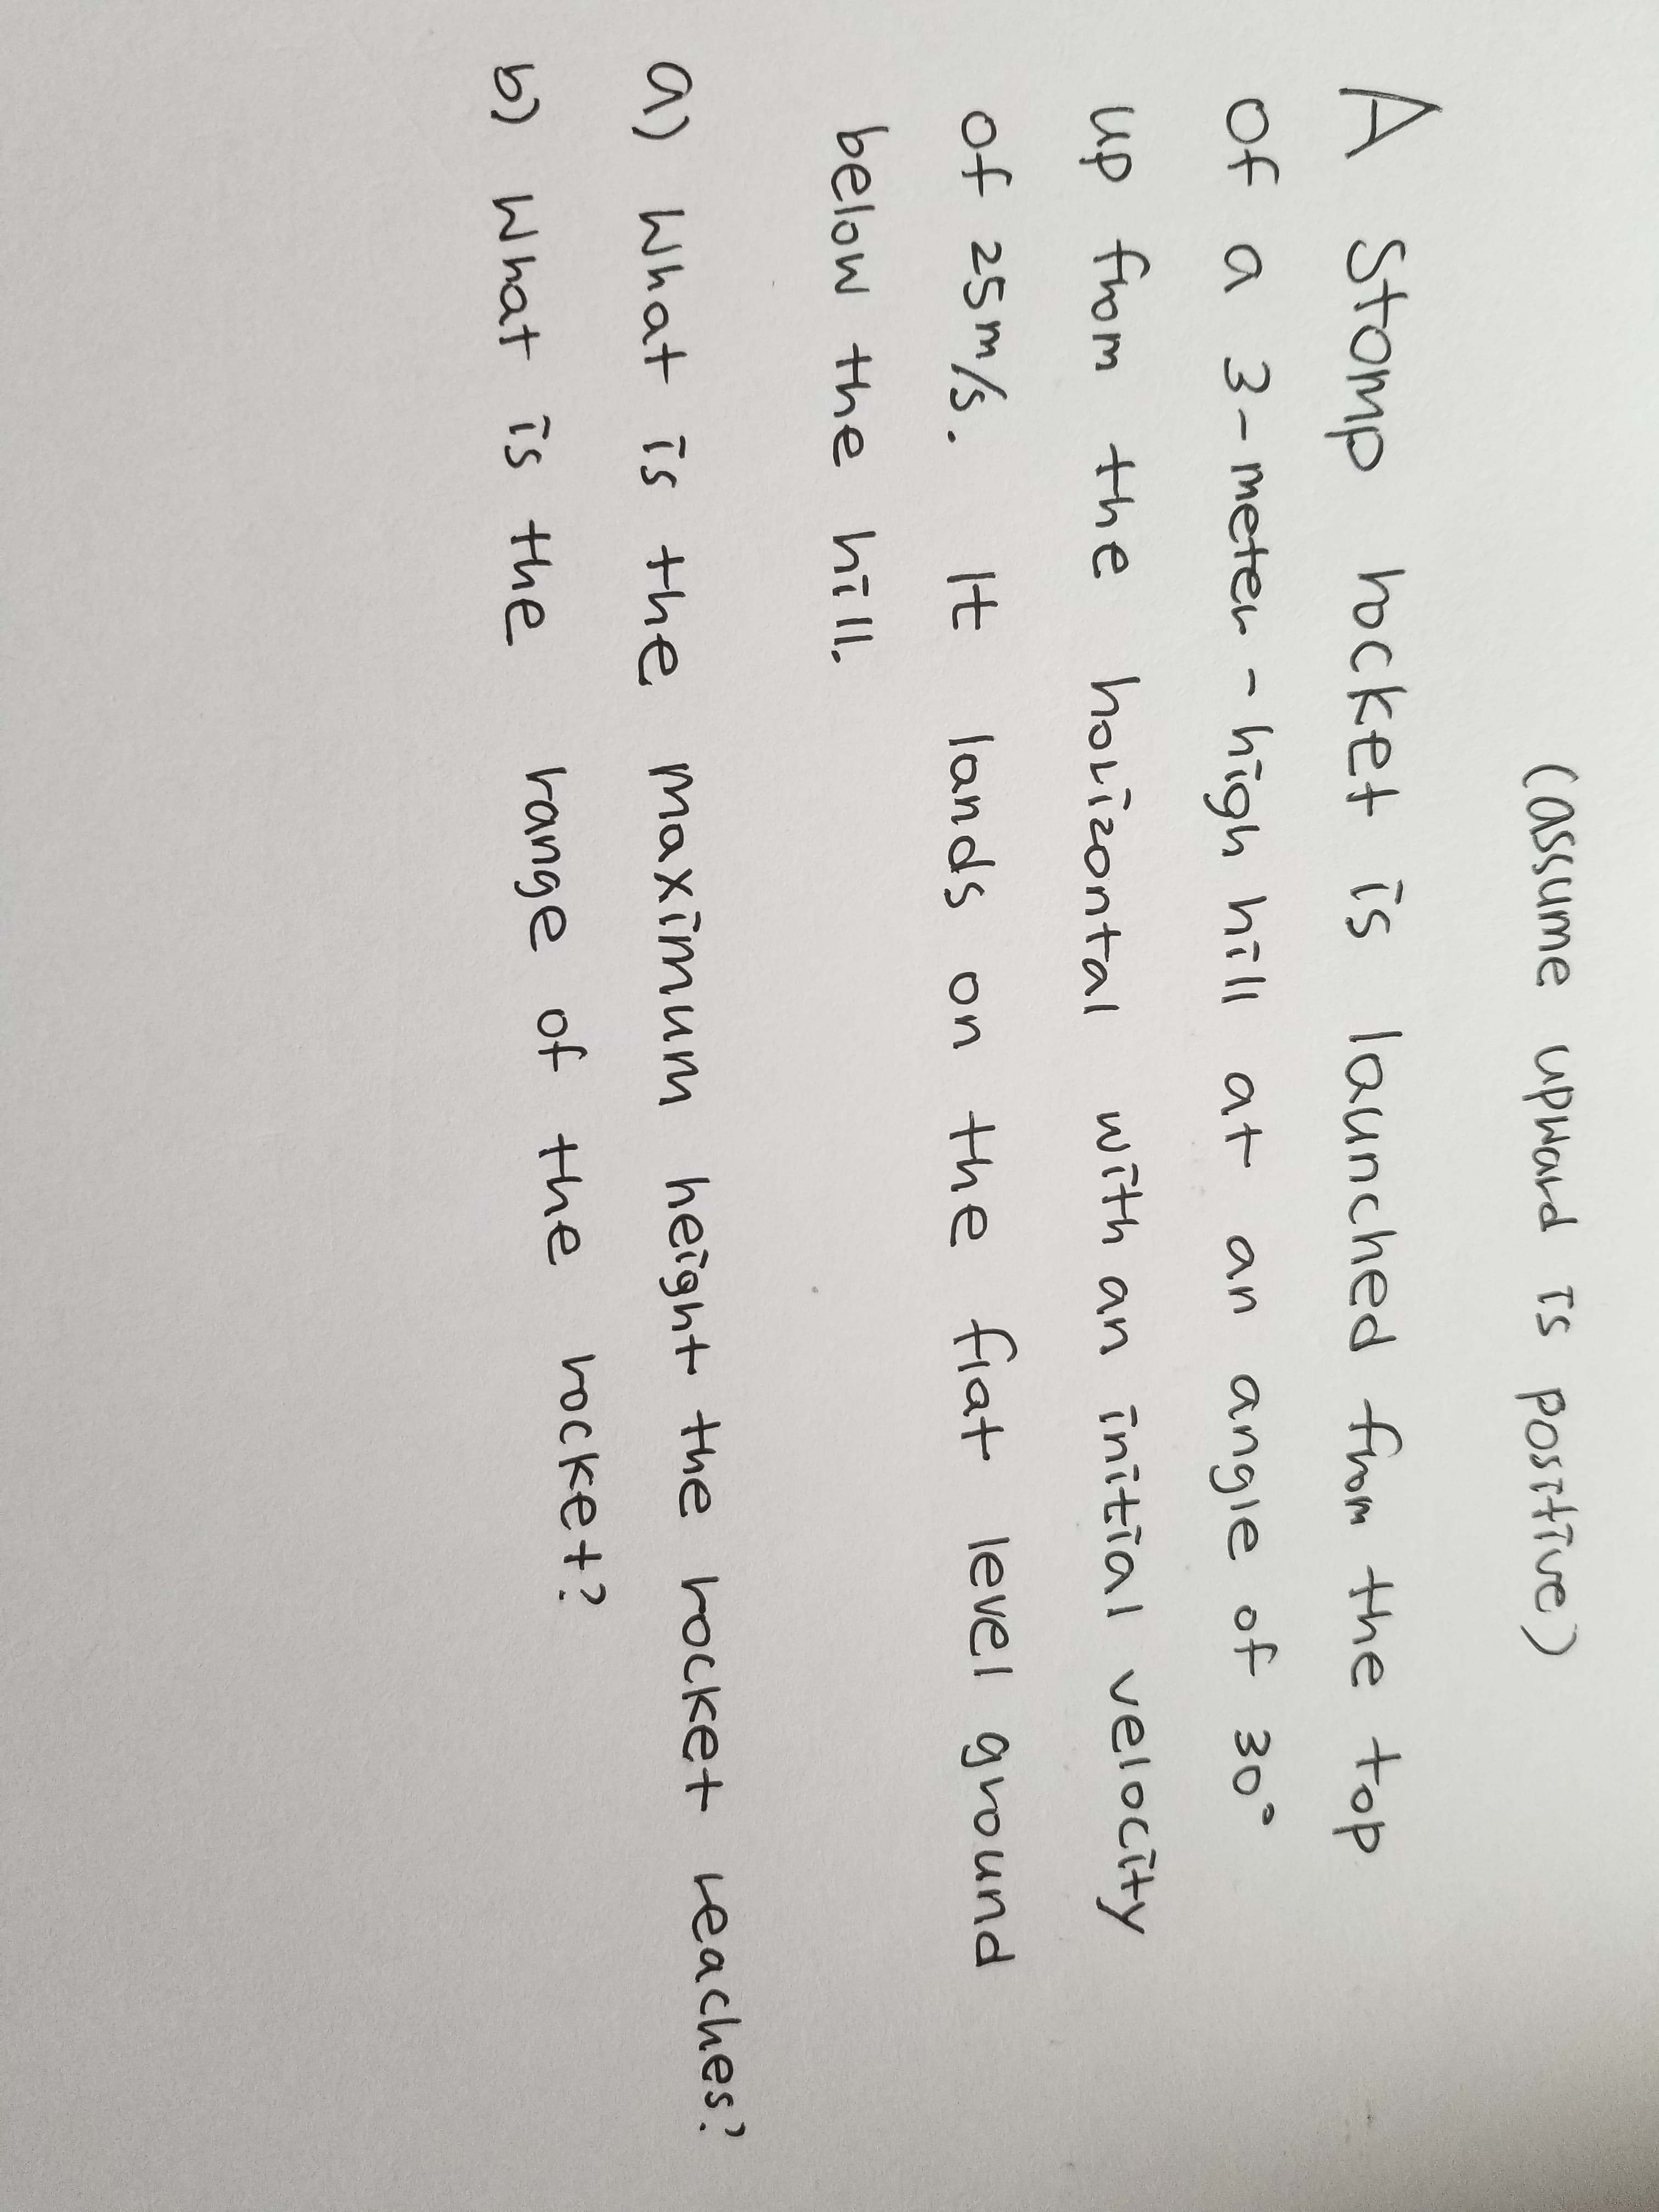 (assume upward is positive)
A Stomp rocket is launched from the top
of a 3-meter-high hill at an angle of 30°
up from the horizontal with an initial velocity
of 25m/s. It lands on the flat level ground
below the hill.
a) What is the maximum height the rocket reaches?
b) What is the range of the rocket?